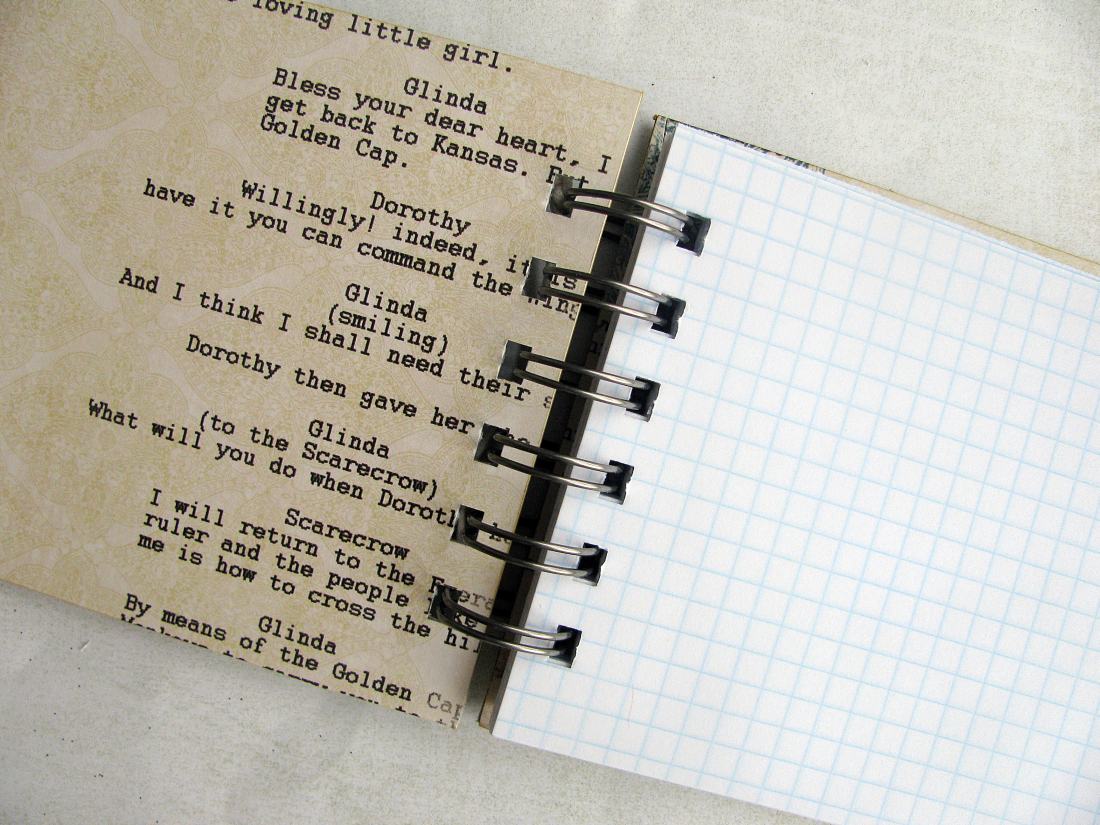 loving little girl.
Glinda
Bless your dear heart, I
get back to Kansas. But
Golden Cap.
Dorothy
Willingly! indeed, it is
have it you can command the wing
Glinda
(smiling)
And I think I shall need their
Dorothy then gave her
Glinda
(to the Scarecrow)
What will you do when Doroth
Scarecrow
I will return to the Emera
ruler and the people like
me is how to cross the hil
Glinda
By means of the Golden Cap